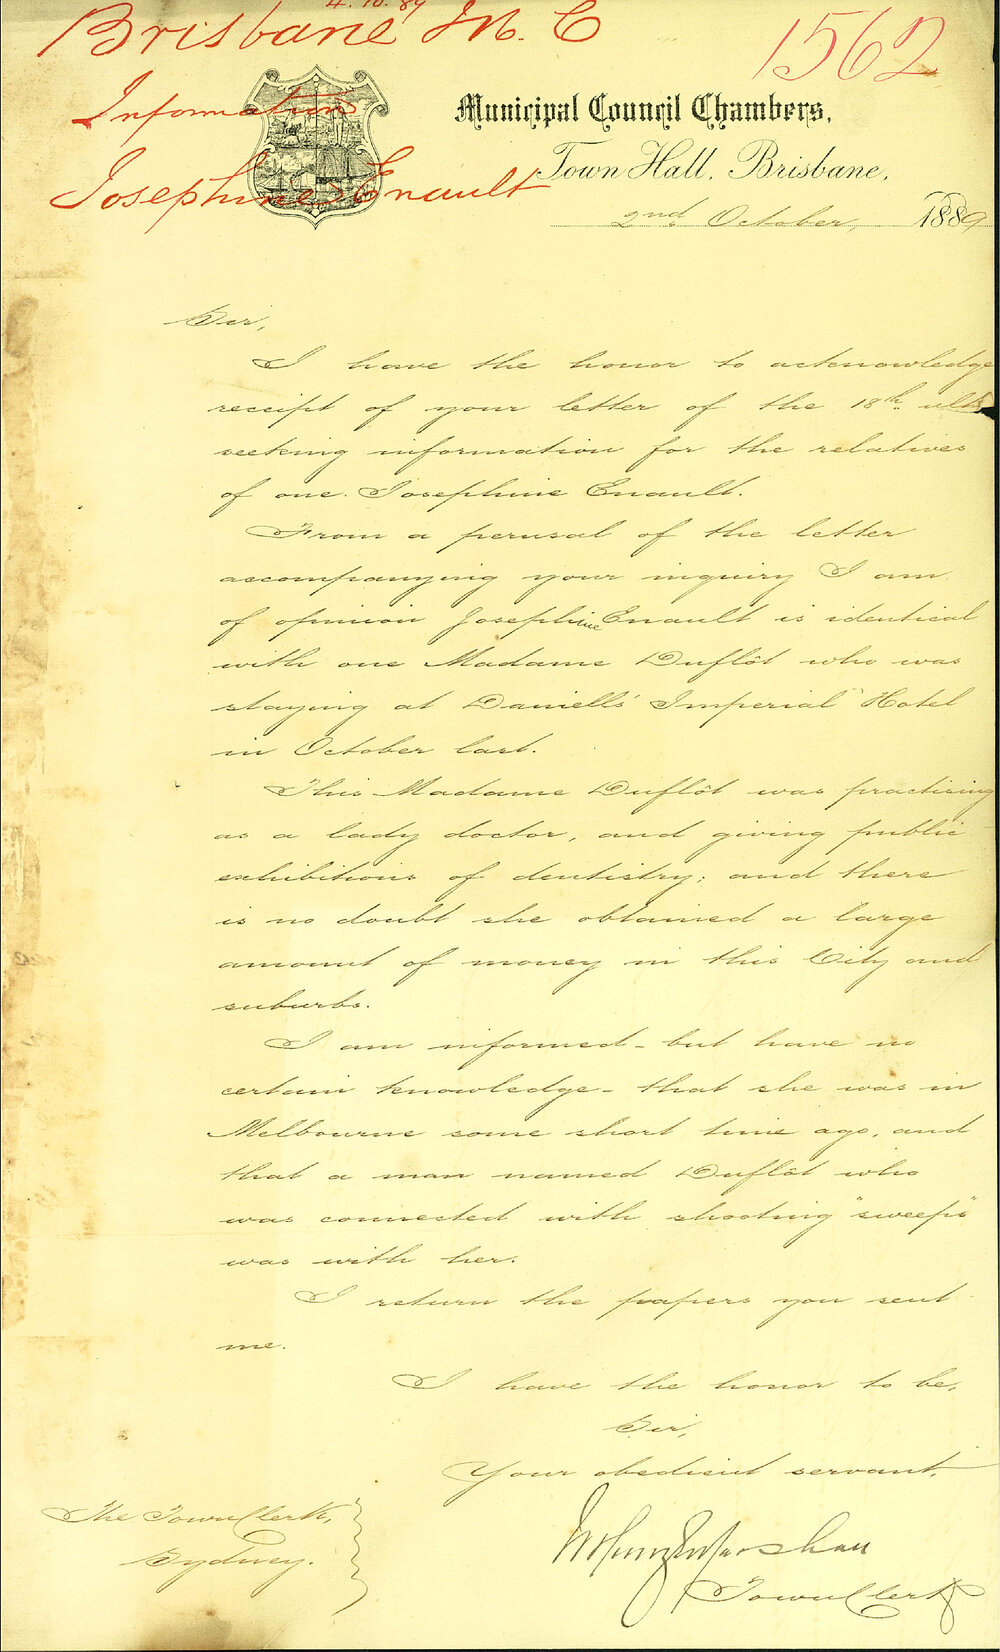 4.10.89
Brisbane M.C
1562
Information
Josephine Enault
Municipal Council Chambers,
Town Hall, Brisbane,
2nd October, 1889
Sir,
I have the honor to acknowledge
receipt of your letter of the 18th. ulto
seeking information for the relatives
of one. Josephine Enault.
From a perusal of the letter
accompanying your inquiry I am
of opinion Josephine Enault is identical
with one Madame Duflôt who was
staying at Daniells' "Imperial" Hotel
in October last.
This Madame Duflôt was practising
as a lady doctor, and giving public
exhibitions of dentistry; and there
is no doubt she obtained a large
amount of money in this City and
suburbs.
I am informed - but have no
certain knowledge - that she was in
Melbourne some short time ago, and
that a man named Duflôt who
was connected with shooting "sweeps"
was with her.
I return the papers you sent
me.
I have the honor to be,
Sir,
Your obedient servant,
Marshall
Town Clerk
The Town Clerk,
Sydney.